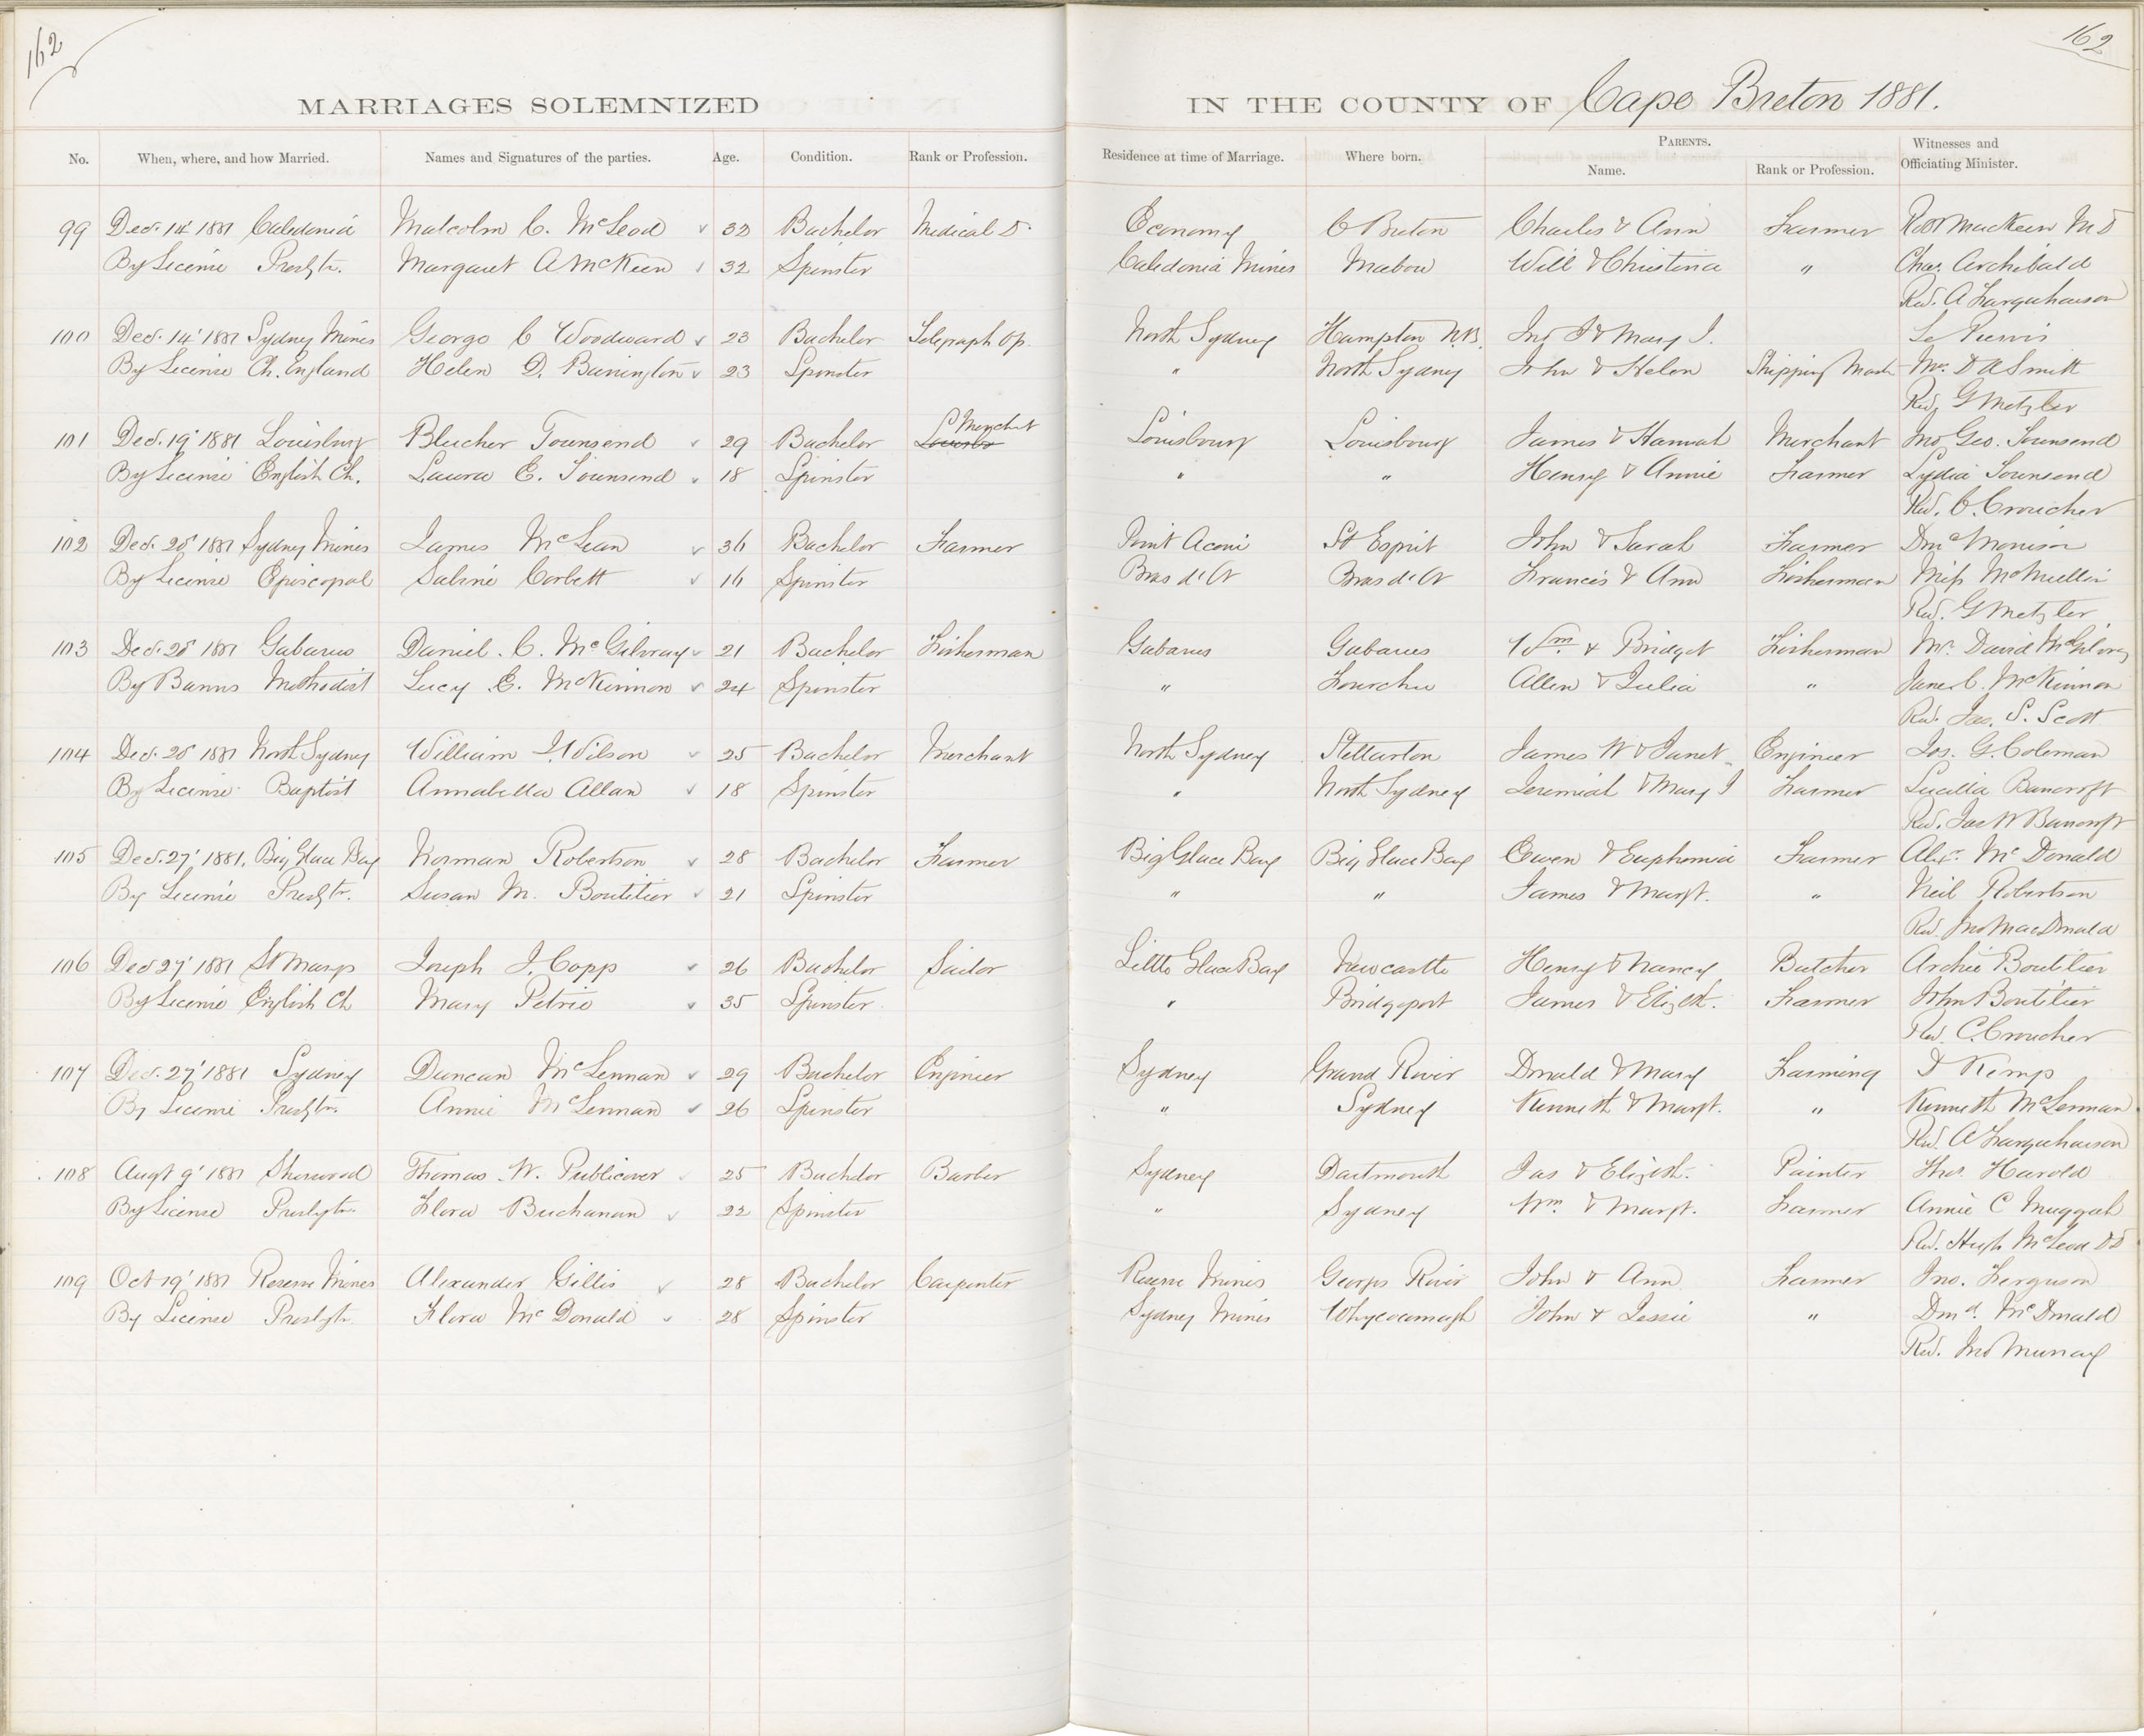 162
162
MARRIAGES SOLEMNIZED IN THE COUNTY OF Cape Breton 1881.
No. When, where, and how Married. Names and Signatures of the parties. Age. Condition. Rank or Profession. Residence at time of Marriage. Where born. PARENTS. Name. Rank or Profession. Witnesses and Officiating Minister.
99 Dec. 14' 1881 Caledonia Malcolm C. McLeod 32 Bachelor Medical D. Economy C Breton Charles & Ann Farmer Robt MacKeen M D
By License Presbytn. Margaret A McKeen 32 Spinster Caledonia Mines Mabou Will & Christina " Chas. Archibald
Rev. A Farquharson
100 Dec. 14' 1881 Sydney Mines George C Woodward 23 Bachelor Telegraph Op. North Sydney Hampton N.B. Jno J & Mary J. Le Purvis
By License Ch. England Helen D. Barrington 23 Spinster " North Sydney John & Helen Shipping Mast Mr. D A Smith
Rev. G Metzler
101 Dec. 19' 1881 Louisburg Blucher Townsend 29 Bachelor Merchat Louisbourg Louisbourg James & Hannah Merchant Jno Geo. Townsend
By License English Ch. Laura E. Townsend 18 Spinster " " Henry & Annie Farmer Lydia Townsend
Rev. C. Croucher
102 Dec. 20' 1881 Sydney Mines James McLean 36 Bachelor Farmer Point Aconi St Esprit John & Sarah Farmer Dnc Morrison
By License Episcopal Sabine Corbett 16 Spinster Bras d'Or Bras d'Or Francis & Ann Fisherman Miss McMullin
Rev. G Metzler
103 Dec. 20' 1881 Gabarus Daniel. C. McGilvray 21 Bachelor Fisherman Gabarus Gabarus Wm. & Bridget Fisherman Mr. David McGilvray
By Banns Methodist Lucy E. McKinnon 24 Spinster " Fourchu Allen & Julia " Jane C. McKinnon
Rev. Jas. S. Scott
104 Dec. 20' 1881 North Sydney William J. Wilson 25 Bachelor Merchant North Sydney Stellarton James W & Janet Engineer Jos. G. Coleman
By License Baptist Annabella Allan 18 Spinster " North Sydney Jeremiah & Mary J Farmer Lucilla Bancroft
Rev. Jas W Bancroft
105 Dec. 27' 1881. Big Glace Bay Norman Robertson 28 Bachelor Farmer Big Glace Bay Big Glace Bay Owen & Euphemia Farmer Alexr. McDonald
By License Presbytn. Susan M. Boutilier 21 Spinster " " James & Margt. " Neil Robertson
Rev. Jno MacDonald
106 Dec 27' 1881 St Marys Joseph J. Copp 26 Bachelor Sailor Little Glace Bay Newcastle Henry & Nancy Butcher Archie Boutilier
By License English Ch Mary Petrie 35 Spinster " Bridgeport James & Elizth. Farmer John Boutilier
Rev. C. Croucher
107 Dec. 27' 1881 Sydney Duncan McLennan 29 Bachelor Engineer Sydney Grand River Donald & Mary Farming D Kemp
By License Presbytn. Annie McLennan 26 Spinster " Sydney Kenneth & Margt. " Kenneth McLennan
Rev. A Farquharson
108 Augt 9' 1881 Sherwood Thomas W. Publicover 25 Bachelor Barber Sydney Dartmouth Jas & Elizth. Painter Thos. Harold
By License Presbytn. Flora Buchanan 22 Spinster " Sydney Wm. & Margt. Farmer Annie C Muggah
Rev. Hugh McLeod D D
109 Oct 19' 1881 Reserve Mines Alexander Gillis 28 Bachelor Carpenter Reserve Mines Georges River John & Ann Farmer Jno. Ferguson
By License Presbytn. Flora McDonald 28 Spinster Sydney Mines Whycocomagh John & Jessie " Dnd. McDonald
Rev. Jno Murray